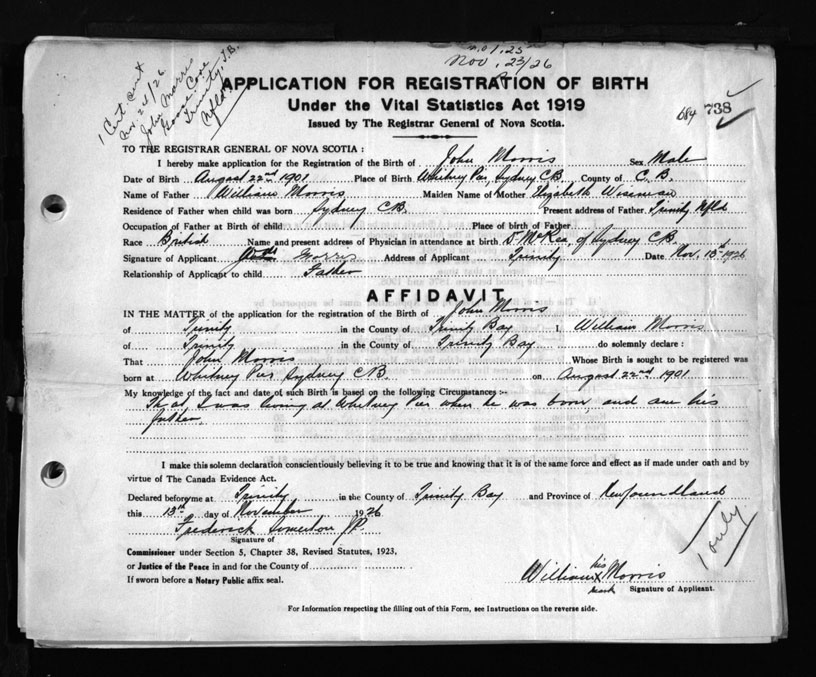 Nov. 23/26
1 Cert sent
Nov. 24/26
John Morris
Goose Cove
Trinity T.B.
Nfld
APPLICATION FOR REGISTRATION OF BIRTH
Under the Vital Statistics Act 1919
Issued by The Registrar General of Nova Scotia.
684 738
TO THE REGISTRAR GENERAL OF NOVA SCOTIA:
I hereby make application for the Registration of the Birth of John Morris Sex Male
Date of Birth August 22nd 1901 Place of Birth Whitney Pier, Sydney CB County of C.B.
Name of Father William Morris Maiden Name of Mother Elizabeth Wiseman
Residence of Father when child was born Sydney CB. Present address of Father Trinity Nfld
Occupation of Father at Birth of child Place of birth of Father
Race British Name and present address of Physician in attendance at birth Dr McRae, of Sydney CB.
Signature of Applicant Morris Address of Applicant Trinity Date Nov. 13th 1926
Relationship of Applicant to child Father
AFFIDAVIT
IN THE MATTER of the application for the registration of Birth of John Morris
of Trinity in the County of Trinity Bay I, William Morris
of Trinity in the County of Trinity Bay do solemnly declare:
That John Morris Whose Birth is sought to be registered was
born at Whitney Pier Sydney CB. on August 22nd 1901
My knowledge of the fact and date of such Birth is based on the following Circumstances :-
That I was living at Whitney Pier when he was born, and am his
father.
I make this solemn declaration conscientiously believing it to be true and knowing that it is of the same force and effect as if made under oath and by
virtue of The Canada Evidence Act.
Declared before me at Trinity in the County of Trinity Bay and Province of Newfoundland
this 13th day of November 1926
Frederock Somerton J.P.
Signature of
Commissioner under Section 5, Chapter 38, Revised Statutes, 1923,
or Justice of the Peace in and for the County of
If sworn before a Notary Public affix seal.
1 only
William his x mark Morris
Signature of Applicant.
For Information respecting the filling out of this Form, see Instructions on the reverse side.